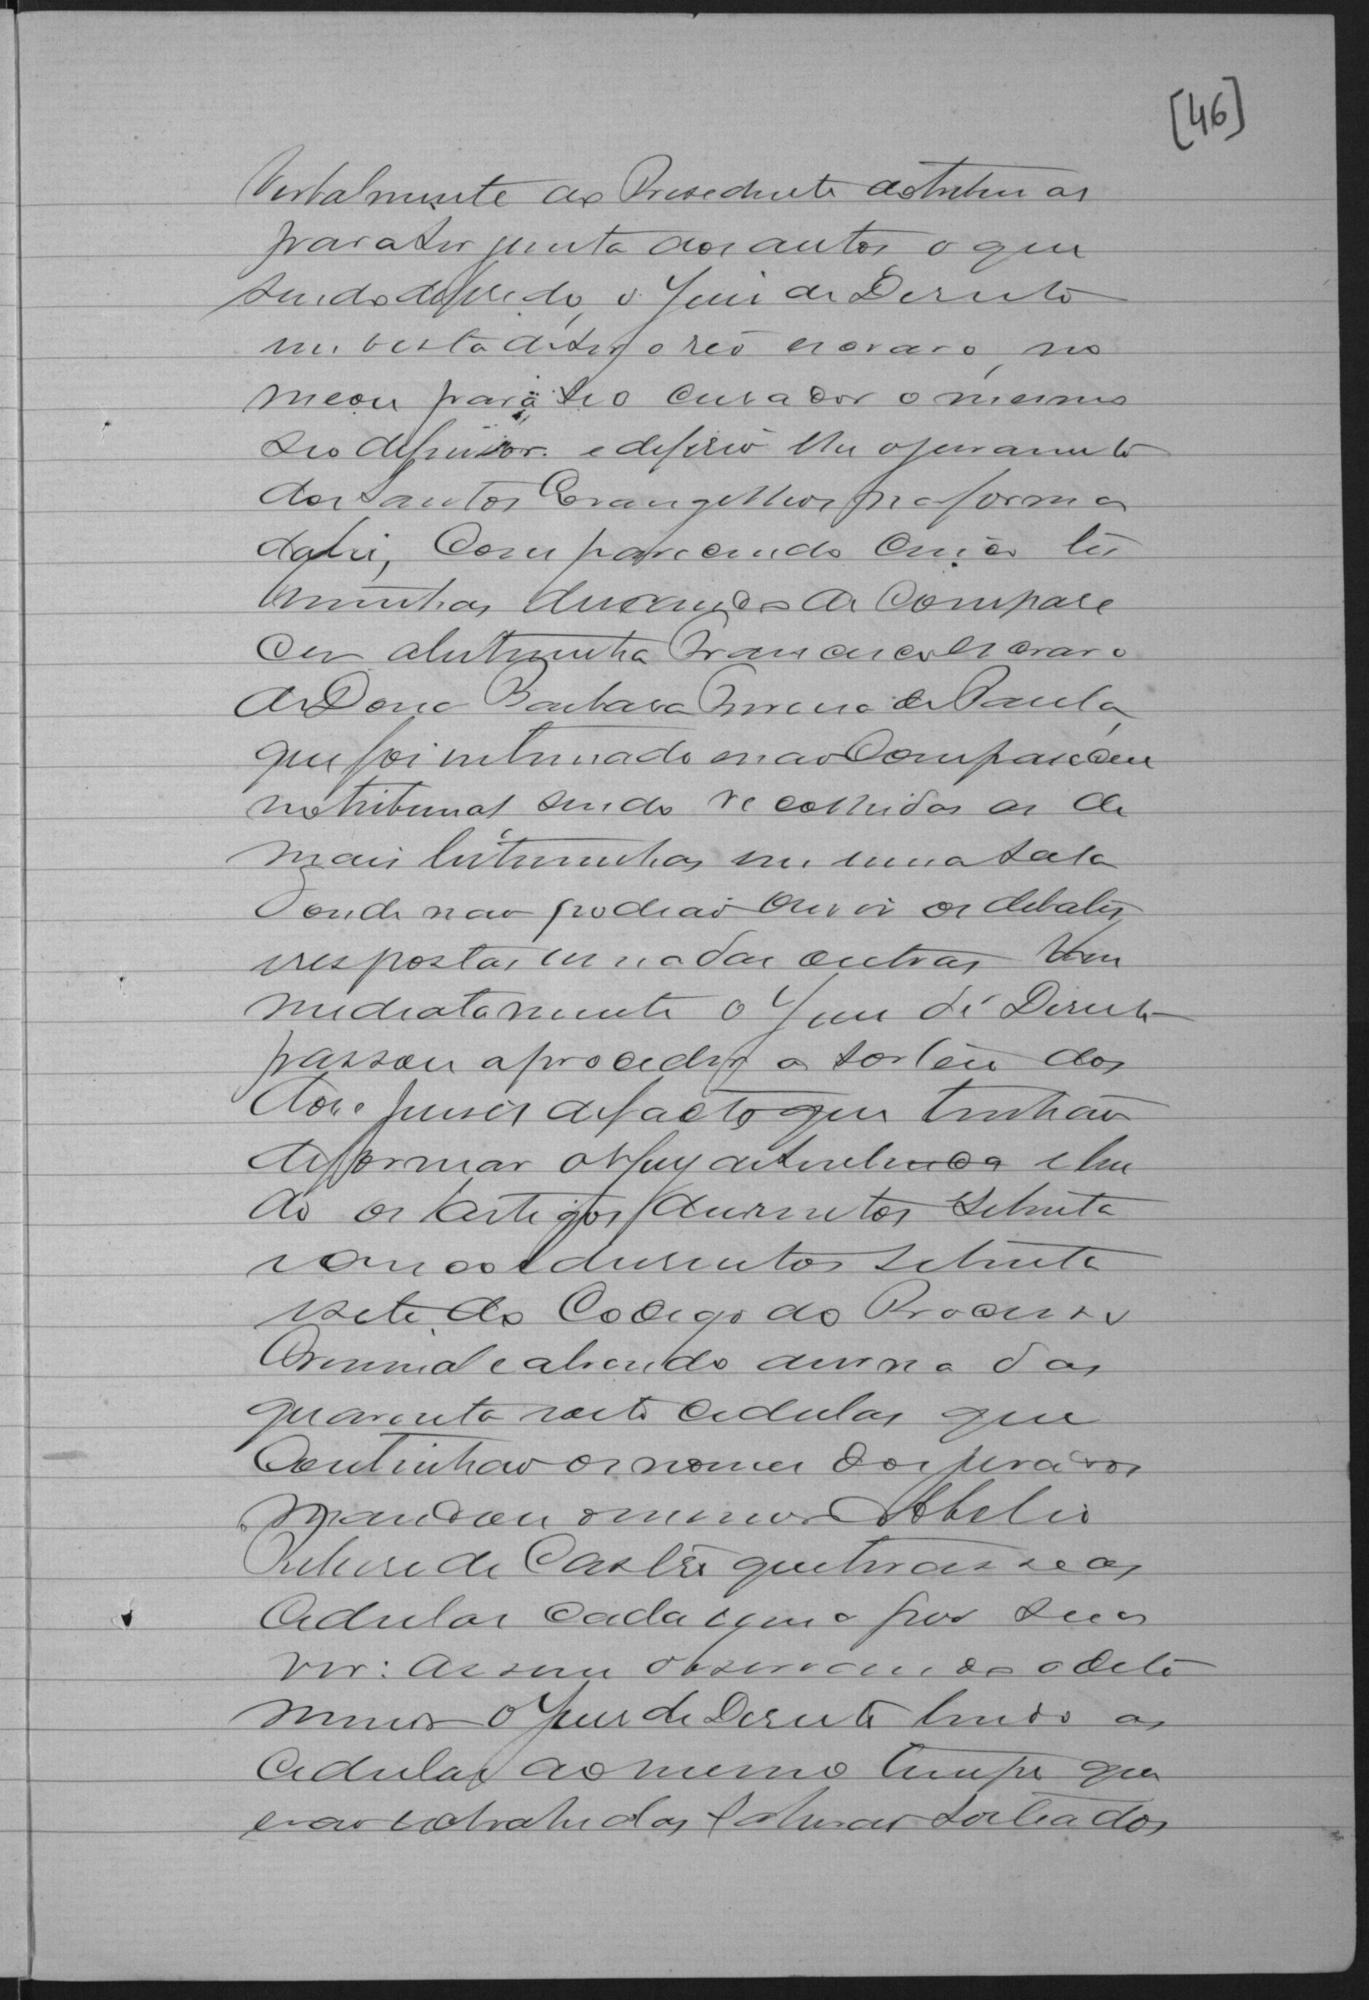 [46]
Verbalmente ao Presedente do tribunal
para ser junta aos autos, o que
sendo deferido, o Juis de Dereito
em vesta de ser o reo escravo, no
meou para seo curador o mesmo
seo defensor e deferio lhe o juramento
dos Santos Evangelhos na forma
da lei, Comparecendo cinco tes
temunhas deixando de Compare
cer a testemunha Francisco escravo
de Dona Barbara de Paula,
que foi intimado e nao Compareceu
no tribunal sendo recolhidas as de
mais testemunhas em uma sala
donde nao podiaõ ouvir os debates,
e respostas umas das outras Im
mediatamente o Juis de Dereito
passou a proceder o sorteio dos
doze juises de facto que tinhaõ
de formar o Jury de Sentença e len
do os artigos dusentos setenta
e cinco e dusentos setenta
e sete do Codego do Processo
Criminal e abrindo a urna das
quarenta e oito cedulas que
Continhao os nomes dos jurados
mandou o menor Abelio
de Castro que tirasse as
Cedulas cada uma por sua
ves: assim observando o dito
menor o Juis de Dereito lendo as
Cedulas ao mesmo tempo que
erao extrahidas e sahirao sorteados